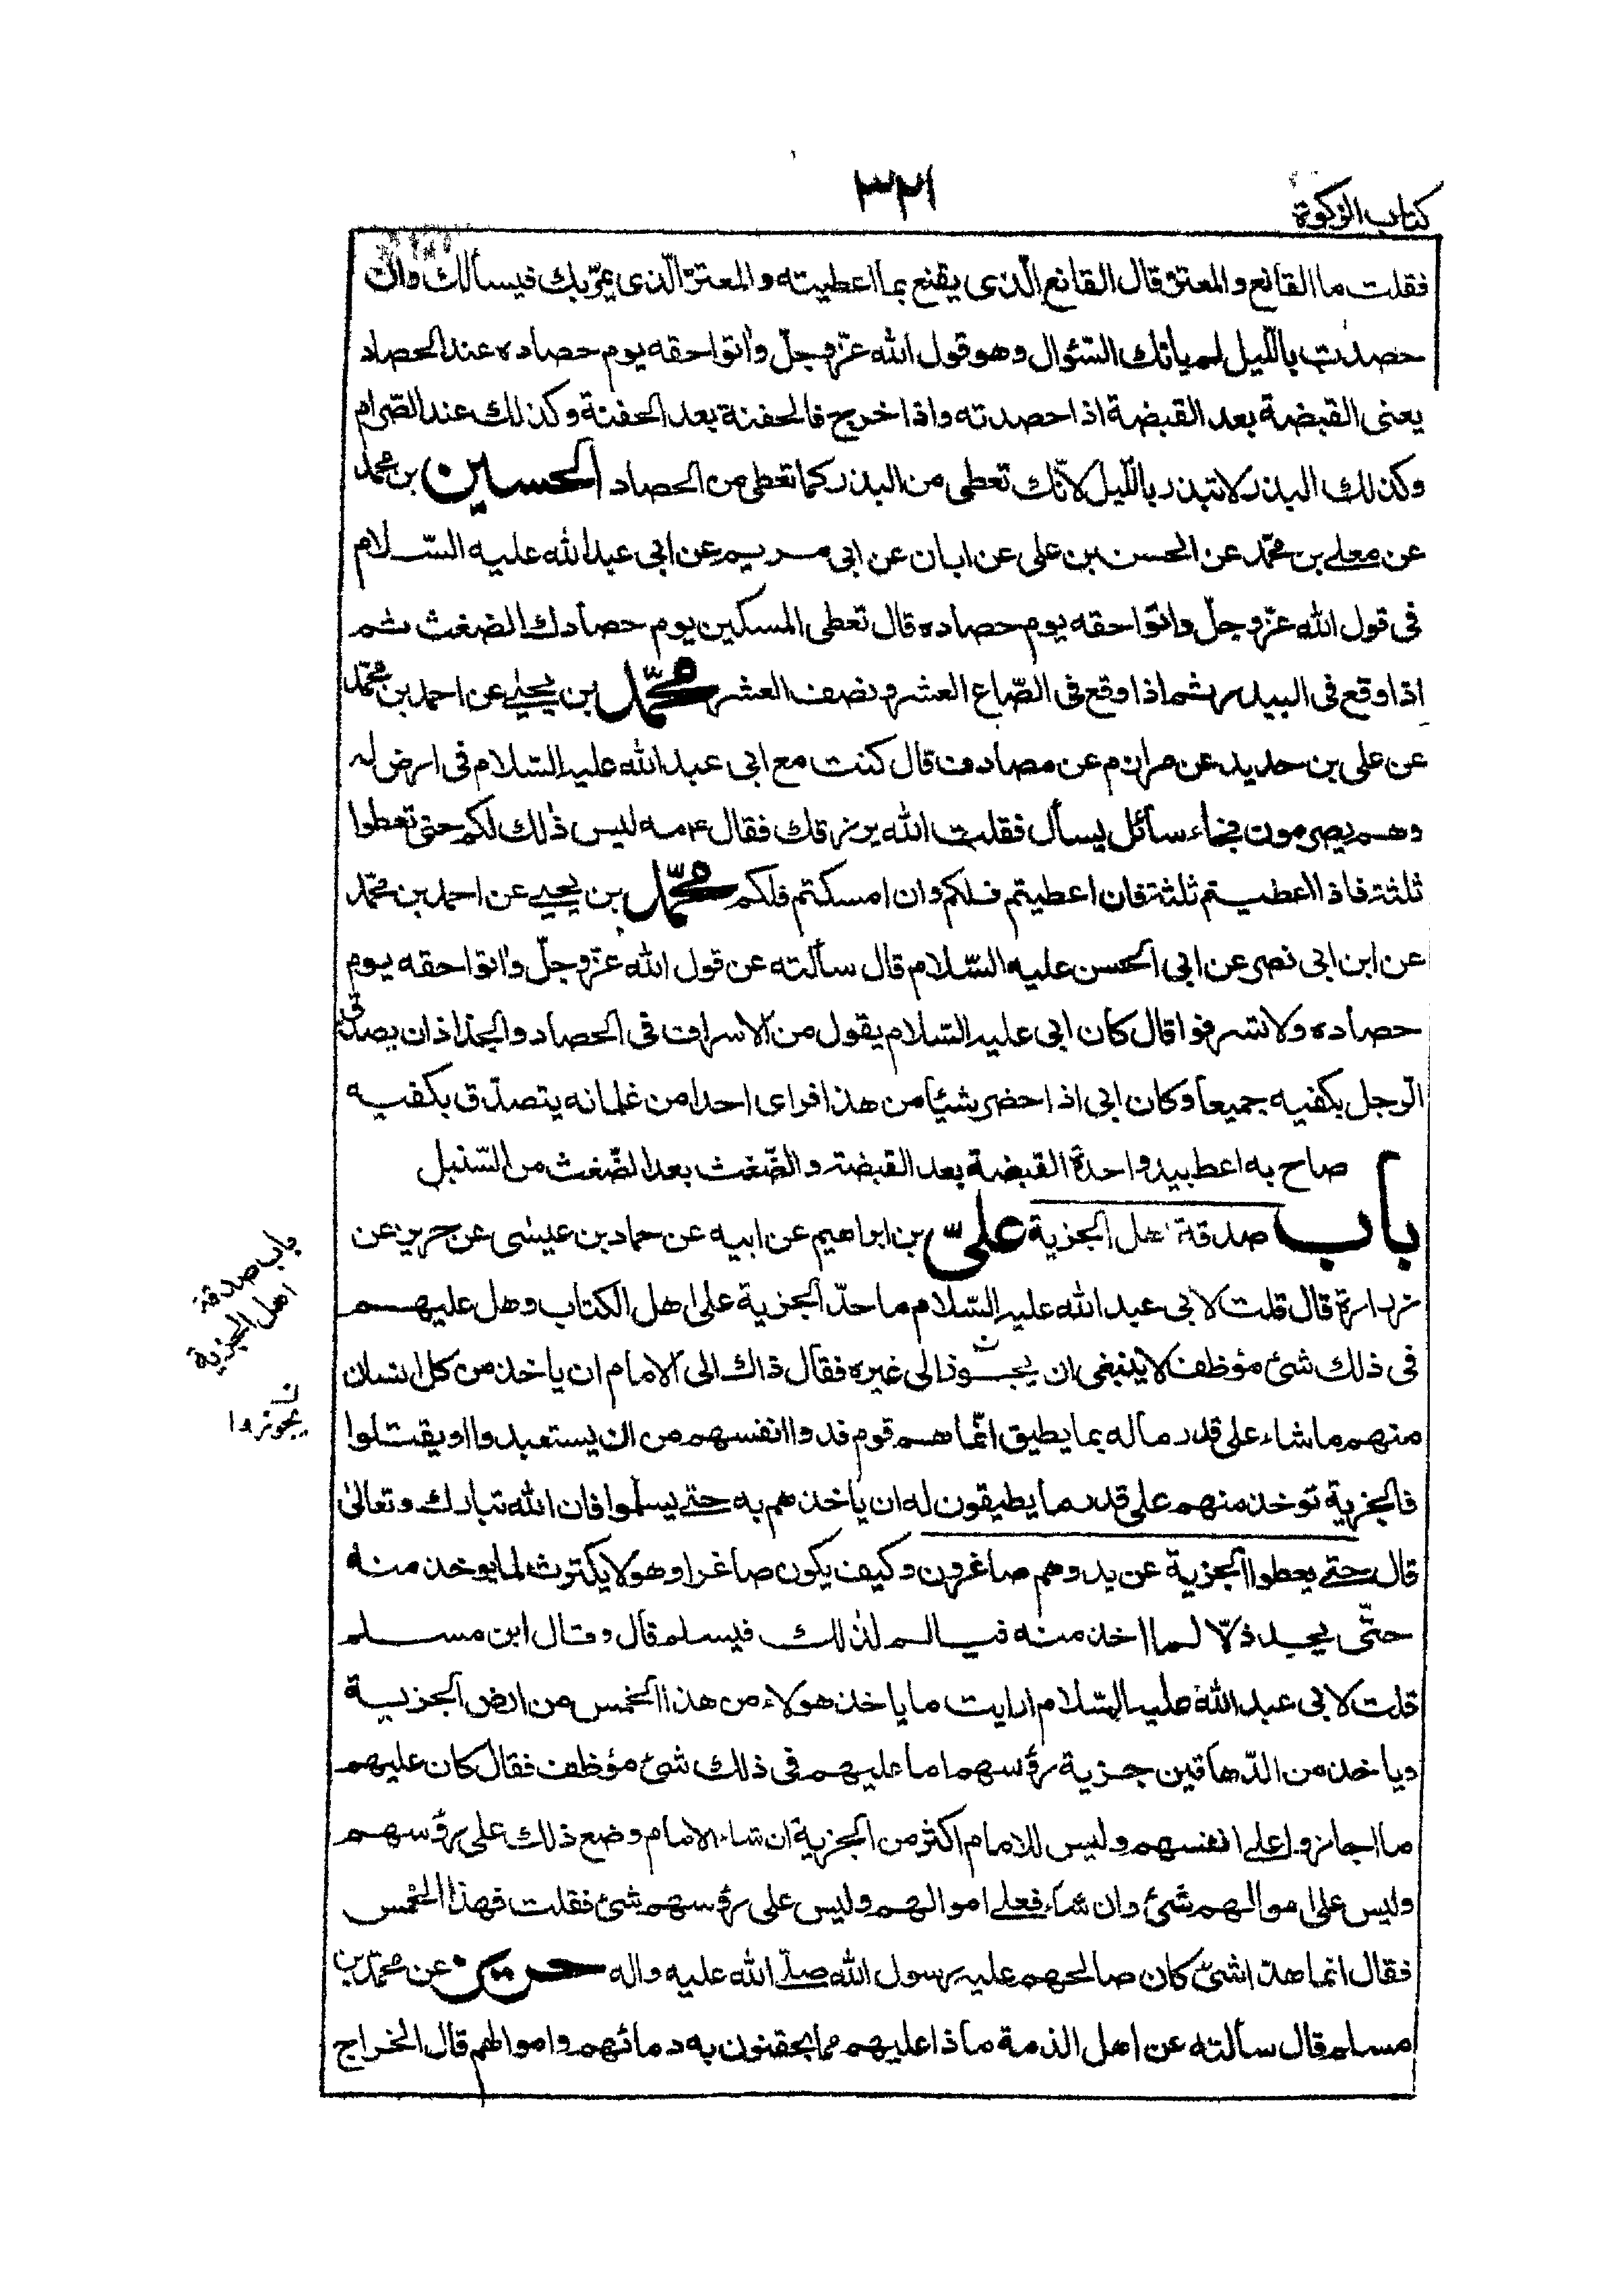 كتاب الزكوة
٣٢١
فقلت ما القانع والمعتر قال القانع الّذى يقنع بما اعطيته والمعترّ الّذى يمرّ بك فيسألك وان
حصدت باللّيل لم يأتك السّؤال وهو قول الله عزّ وجلّ واتوا حقه يوم حصاده عند الحصاد
يعنى القبضة بعد القبضة اذا حصدته واذا خرج فالحفنة بعد الحفنة وكذلك عند الصّرام
وكذلك البذر لا تبذر باللّيل لانّك تعطى من البذر كما تعطى من الحصاد الحسين بن محمد
عن معلى بن محمّد عن الحسن بن على عن ابان عن ابى مريم عن ابى عبد الله عليه السّلام
فى قول الله عزّ وجلّ واتوا حقه يوم حصاده قال تعطى المسكين يوم حصادك الضغث ثم
اذا وقع فى البيدر ثم اذا وقع فى الصّاع العشر ونصف العشر محمّد بن يحيى عن احمد بن محمّد
عن على بن حديد عن مرازم عن مصادف قال كنت مع ابى عبد الله عليه السّلام فى ارض له
وهم يصرمون فجاء سائل يسأل فقلت الله يرزقك فقال ع مه ليس ذلك لكم حتى تعطوا
ثلثة فاذا اعطيتم ثلثة فان اعطيتم فلكم وان امسكتم فلكم محمّد بن يحيى عن احمد بن محمّد
عن ابن ابى نصر عن ابى الحسن عليه السّلام قال سألته عن قول الله عزّ وجلّ واتوا حقه يوم
حصاده ولا تسرفوا قال كان ابى عليه السّلام يقول من الاسراف فى الحصاد والجذاذ ان يصدّق
الرّجل بكفيه جميعا وكان ابى اذا حضر شيئا من هذا فراى احدا من غلمانه يتصدّق بكفيه
صاح به اعط بيد واحدة القبضة بعد القبضة والضّغث بعد الضّغث من السّنبل
باب صدقة اهل الجزية علىّ بن ابراهيم عن ابيه عن حماد بن عيسى عن حريز عن
زرارة قال قلت لابى عبد الله عليه السّلام ما حدّ الجزية على اهل الكتاب وهل عليهم
فى ذلك شئ مؤظف لا ينبغى ان يجوز الى غيره فقال ذاك الى الامام ان ياخذ من كل انسان
منهم ما شاء على قدر ماله بما يطيق انّما هم قوم فدوا انفسهم من ان يستعبدوا او يقتلوا
فالجزية توخذ منهم على قدر ما يطيقون له ان ياخذهم به حتى يسلموا فان الله تبارك وتعالى
قال حتى يعطوا الجزية عن يد وهم صاغرون وكيف يكون صاغرا وهو لا يكترث لما يوخذ منه
حتّى يجد ذلّا لما اخذ منه فيالم لذلك فيسلم قال وقال ابن مسلم
قلت لابى عبد الله عليه السّلام ارايت ما ياخذ هولاء من هذا الخمس من ارض الجزية
وياخذ من الدّهاقين جزية رؤسهم اما عليهم فى ذلك شئ مؤظف فقال كان عليهم
ما اجازوا على انفسهم وليس للامام اكثر من الجزية ان شاء الامام وضع ذلك على رؤسهم
وليس على اموالهم شئ وان شاء فعلى اموالهم وليس على رؤسهم شئ فقلت فهذا الخمس
فقال انّما هذا شئ كان صالحهم عليه رسول الله صلّى الله عليه واله حريز عن محمّد بن
مسلم قال سألته عن اهل الذمة ماذا عليهم مما يحقنون به دمائهم واموالهم قال الخراج
باب صدقة
اهل الجزية
يجوزوا